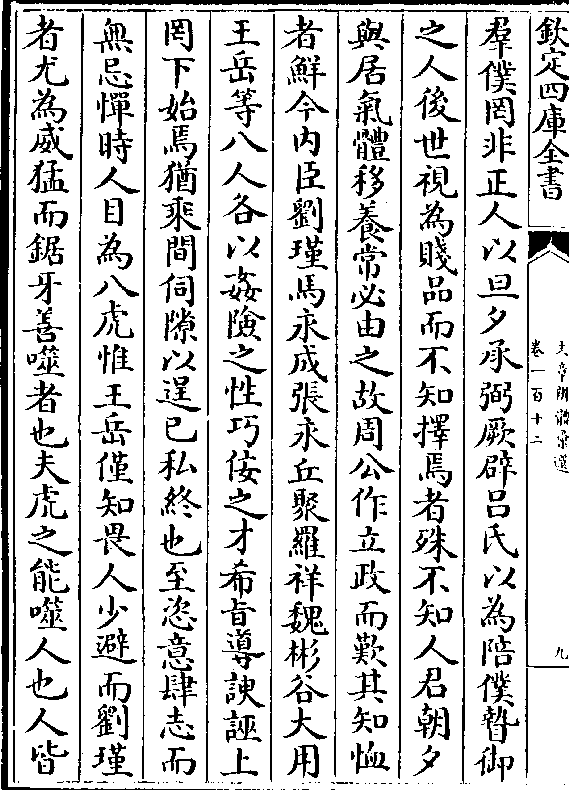 欽定四庫全書
文章辨體彙選
卷一百十二
九
羣僕罔非正人以旦夕承弼厥辟吕氏以為陪僕暬御
之人後世視為賤品而不知擇焉者殊不知人君朝夕
與居氣體移養常必由之故周公作立政而歎其知恤
者鮮今内臣劉瑾馬永成張永丘聚羅祥魏彬谷大用
王岳等八人各以姦險之性巧佞之才希旨導諛誣上
罔下始焉猶乘間伺隙以逞已私終也至恣意肆志而
無忌憚時人目為八虎惟王岳僅知畏人少避而劉瑾
者尤為威猛而鋸牙善噬者也夫虎之能噬人也人皆